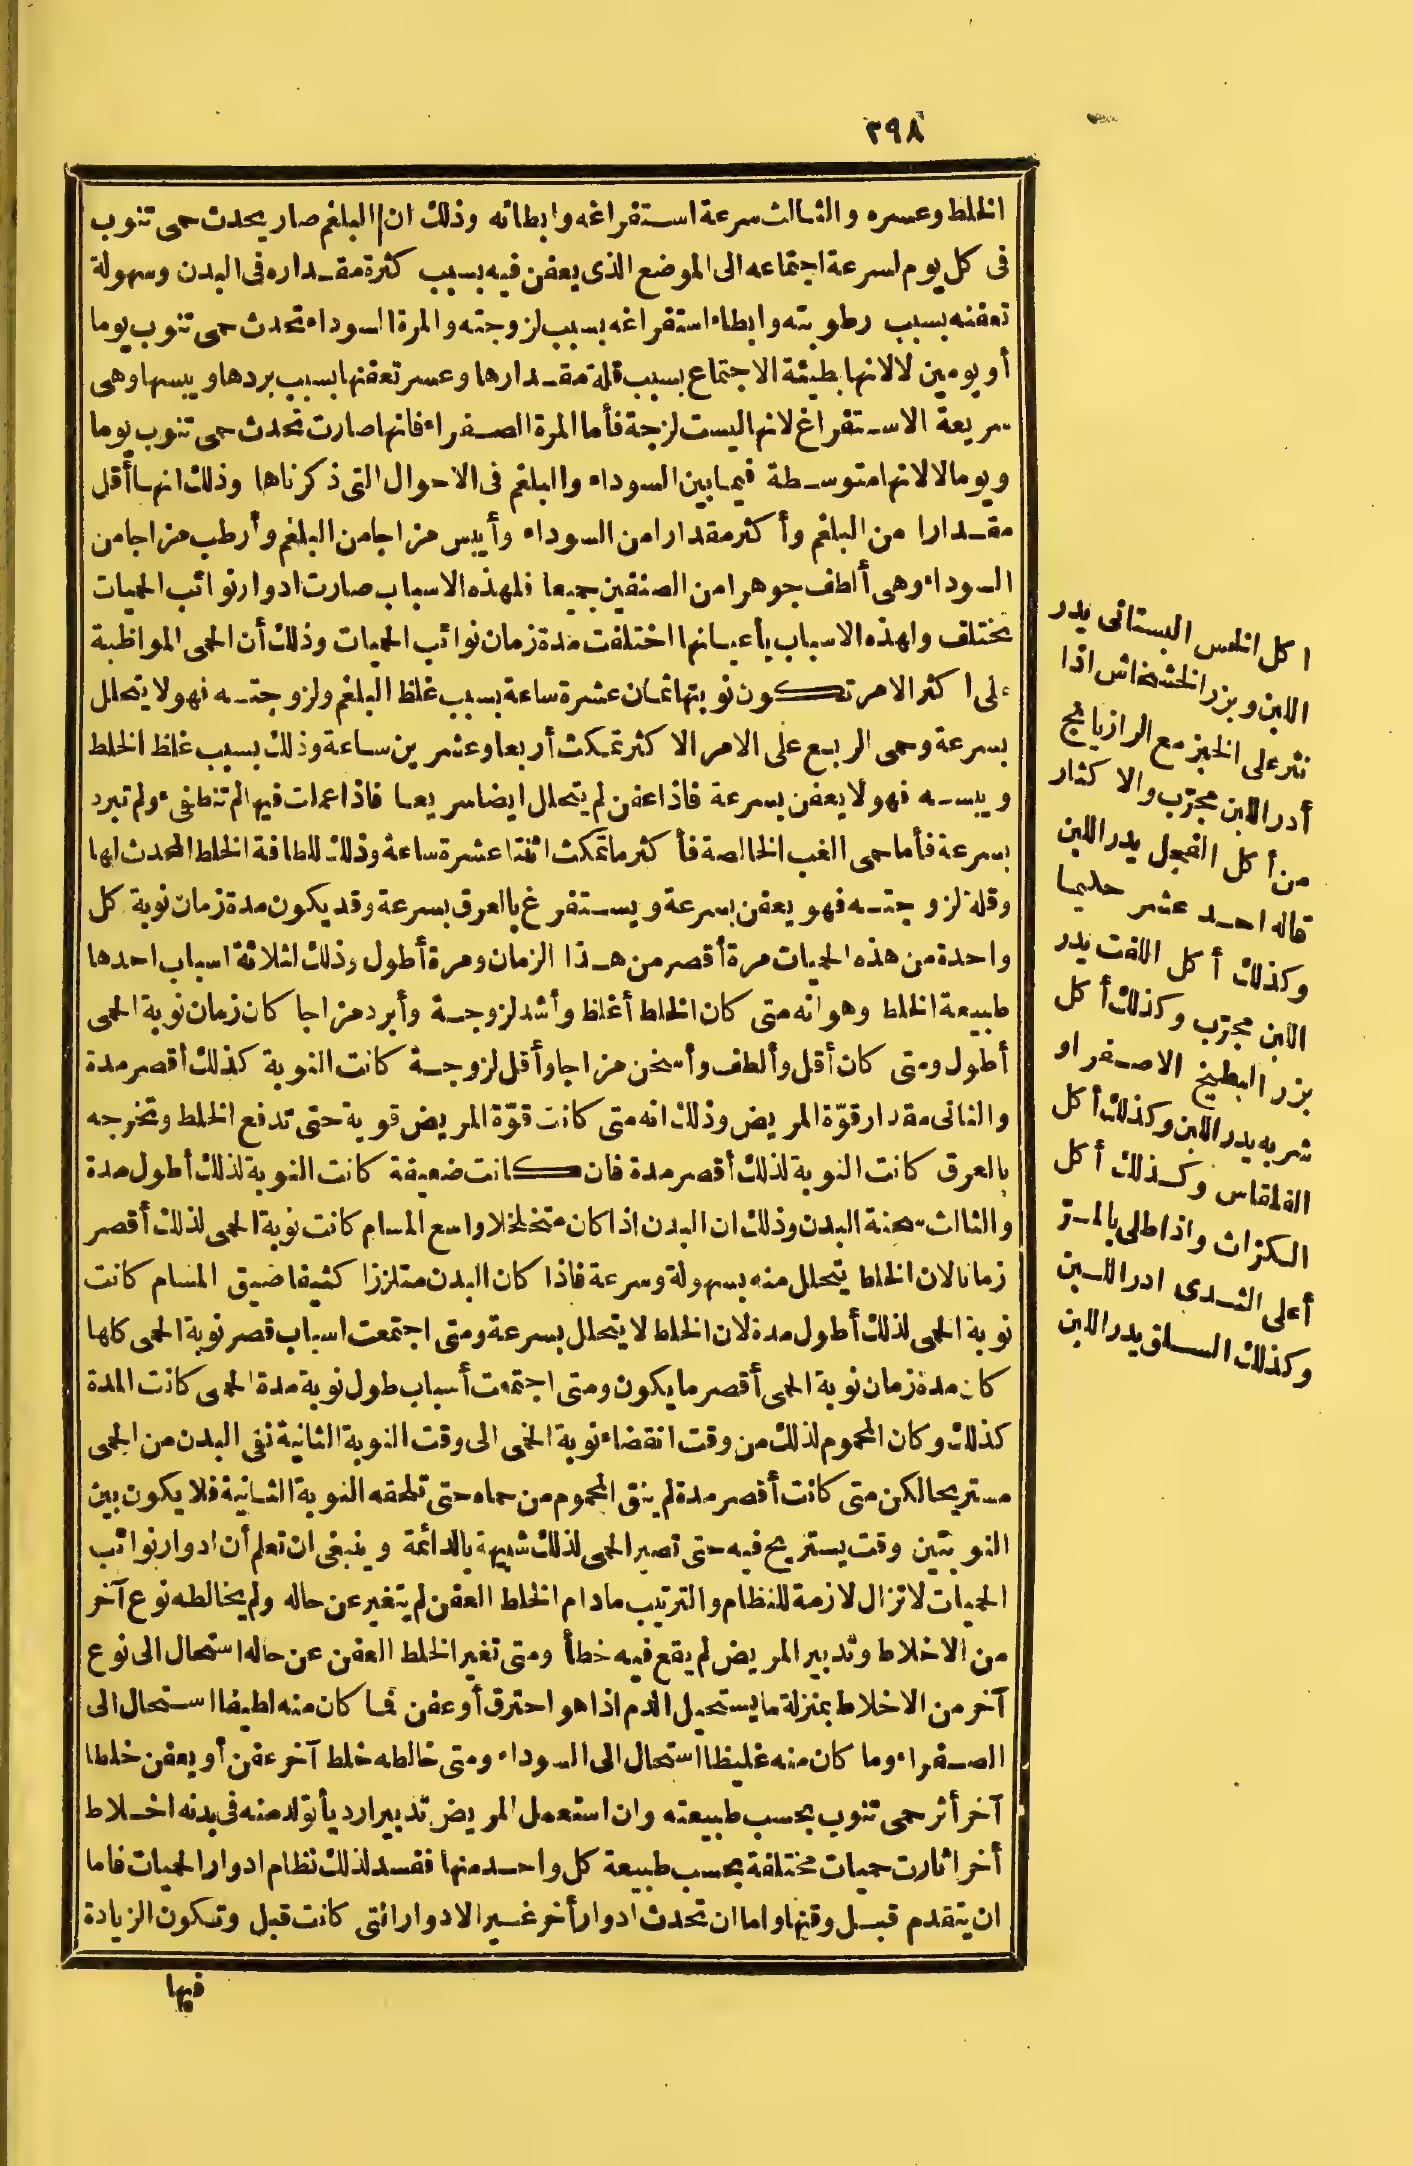 ٢٩٨
الخلط وعسره والثالث سرعة استفراغه وابطائه وذلك ان البلغم صار يحدث حمى تنوب
فى كل يوم لسرعة اجتماعه الى الموضع الذى يعفن فيه بسبب كثرة مقداره فى البدن وسهولة
تعفنه بسبب رطوبته وابطاء استفراغه بسبب لزوجته والمرة السوداء تحدث حمى تنوب يوما
أو يومين لا لانها بطيئة الاجتماع بسبب قلة مقدارها وعسر تعفنها بسبب بردها ويبسها وهى
سريعة الاستفراغ لانها ليست لزجة فأما المرة الصفراء فانها صارت تحدث حمى تنوب يوما
ويوما لا لانها متوسطة فيما بين السوداء والبلغم فى الاحوال التى ذكرناها وذلك انها أقل
مقدارا من البلغم وأكثر مقدارا من السوداء وأيبس مزاجا من البلغم وأرطب مزاجا من
السوداء وهى ألطف جوهرا من الصنفين جميعا فلهذه الاسباب صارت ادوار نوائب الحميات
تختلف ولهذه الاسباب بأعيانها اختلفت مدة زمان نوائب الحميات وذلك أن الحمى المواظبة
على اكثر الامر تكون نوبتها ثمان عشرة ساعة بسبب غلظ البلغم ولزوجته فهو لا يتحلل
بسرعة وحمى الربع على الامر الاكثر تمكث أربعا وعشرين ساعة وذلك بسبب غلظ الخلط
ويبسه فهو لا يعفن بسرعة فاذا عفن لم يتحلل ايضا سريعا فاذا عملت فيها لم تنطفىء ولم تبرد
بسرعة فأما حمى الغب الخالصة فأكثر ما تمكث اثنتا عشرة ساعة وذلك للطافة الخلط المحدث لها
وقلة لزوجته فهو يعفن بسرعة ويستفرغ بالعرق بسرعة وقد يكون مدة زمان نوبة كل
واحدة من هذه الحميات مرة أقصر من هذا الزمان ومرة أطول وذلك لثلاثة اسباب احدها
طبيعة الخلط وهو انه متى كان الخلط أغلظ وأشد لزوجة وأبرد مزاجا كان زمان نوبة الحمى
أطول ومتى كان أقل وألطف وأسخن مزاجا وأقل لزوجة كانت النوبة كذلك أقصر مدة
والثانى مقدار قوّة المريض وذلك انه متى كانت قوّة المريض قوية حتى تدفع الخلط وتخرجه
بالعرق كانت النوبة لذلك أقصر مدة فان كانت ضعيفة كانت النوبة لذلك أطول مدة
والثالث سحنة البدن وذلك ان البدن اذا كان متخلخلا واسع المسام كانت نوبة الحمى لذلك أقصر
زمانا لان الخلط يتحلل منه بسهولة وسرعة فاذا كان البدن متلززا كثيفا ضيق المسام كانت
نوبة الحمى لذلك أطول مدة لان الخلط لا يتحلل بسرعة ومتى اجتمعت اسباب قصر نوبة الحمى كلها
كان مدة زمان نوبة الحمى أقصر ما يكون ومتى اجتمعت أسباب طول نوبة مدة الحمى كانت المدة
كذلك وكان المحموم لذلك من وقت انقضاء نوبة الحمى الى وقت النوبة الثانية نقى البدن من الحمى
مستريحا لكن متى كانت أقصر مدة لم ينق المحموم من حماه حتى تلحقه النوبة الثانية فلا يكون بين
النوبتين وقت يستريح فيه حتى تصير الحمى لذلك شبيهة بالدائمة وينبغى ان تعلم أن ادوار نوائب
الحميات لا تزال لازمة للنظام والترتيب مادام الخلط العفن لم يتغير عن حاله ولم يخالطه نوع آخر
من الاخلاط وتدبير المريض لم يقع فيه خطأ ومتى تغير الخلط العفن عن حاله استحال الى نوع
آخر من الاخلاط بمنزلة ما يستحيل الدم اذا هو احترق أو عفن فما كان منه لطيفا استحال الى
الصفراء وما كان منه غليظا استحال الى السوداء ومتى خالطه خلط آخر عفن أو يعفن خلطا
آخر أثر حمى تنوب بحسب طبيعته وان استعمل المريض تدبيرا رديأ تولد منه فى بدنه اخلاط
أخر اثارت حميات مختلفة بحسب طبيعة كل واحد منها ففسد لذلك نظام ادوار الحميات فاما
ان يتقدم قبل وقتها واما ان تحدث ادوار أخر غير الادوار التى كانت قبل وتكون الزيادة
فيها
اكل الخس البستانى يدر
اللبن وبزر الخشخاش اذا
نثر على الخبز مع الرازيانج
أدر اللبن مجرّب والاكثار
من أكل الفجل يدر اللبن
قاله احد عشر حكيما
وكذلك أكل اللفت يدر
اللبن مجرّب وكذلك أكل
بزر البطيخ الاصفر او
شربه يدر اللبن وكذلك أكل
القلقاس وكذلك أكل
الكرّاث واذا طلى بالمرّ
أعلى الثدى ادر اللبن
وكذلك السلق يدر اللبن